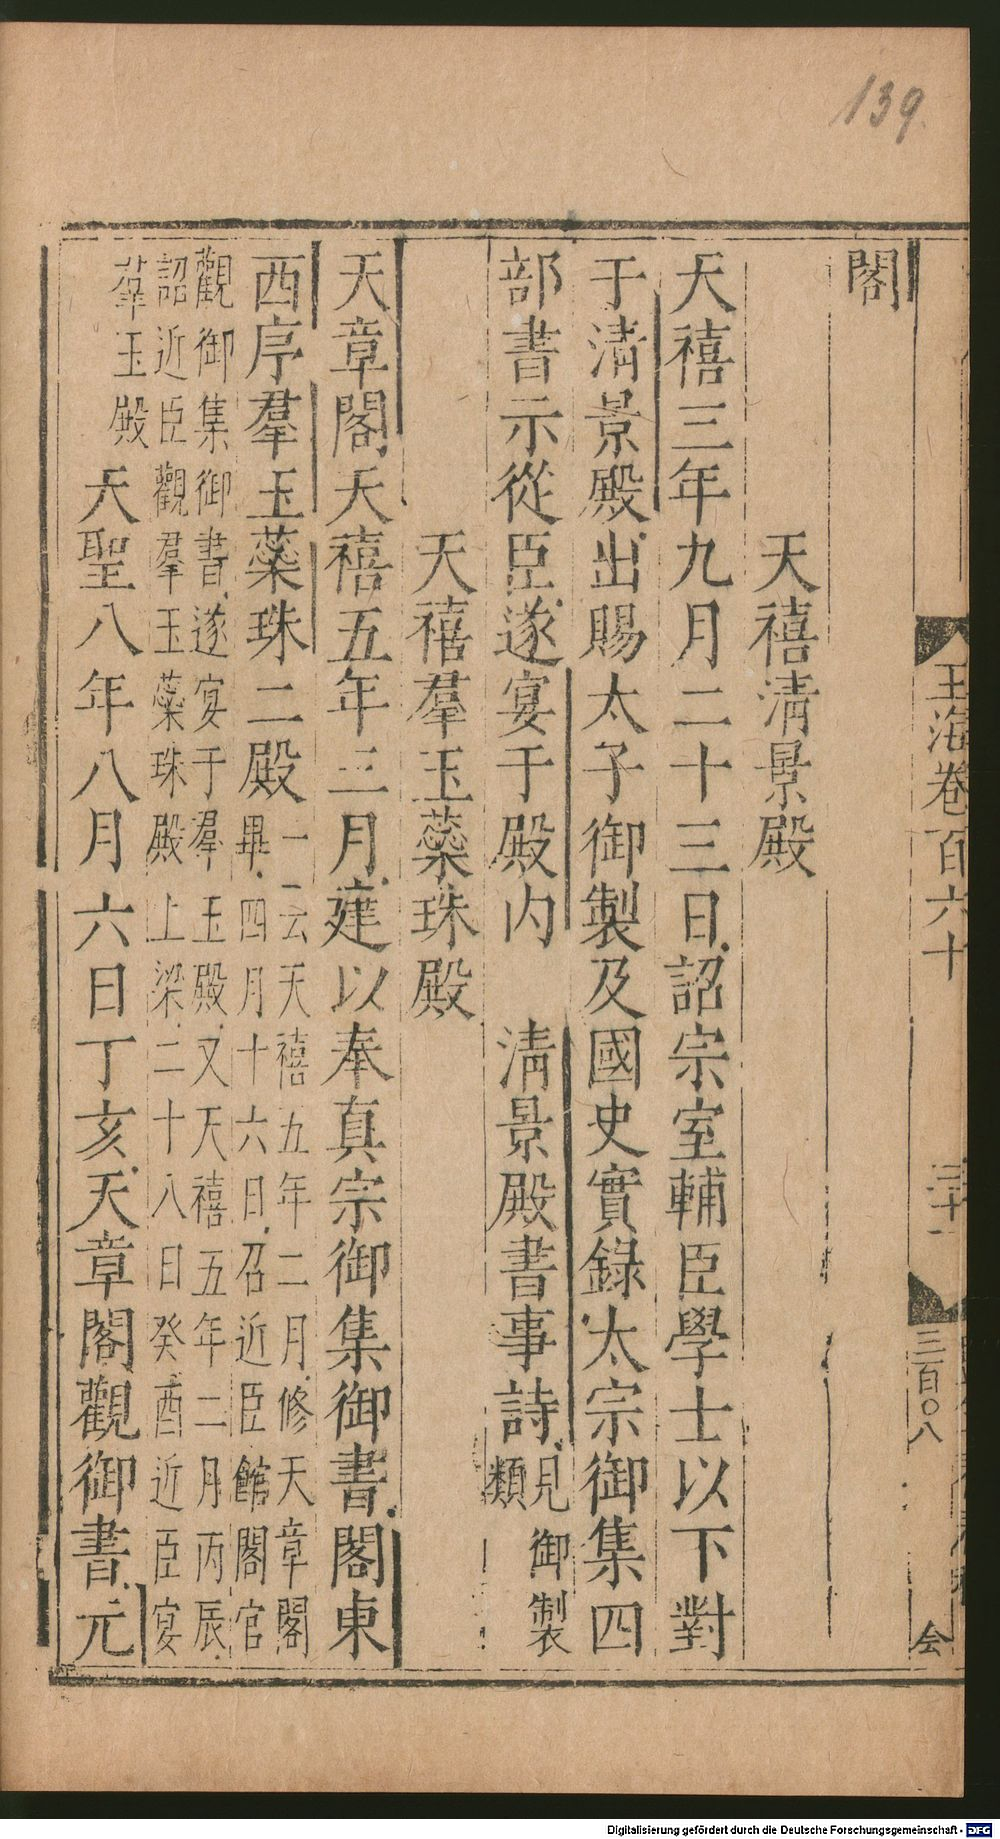 139
玉海卷百六十
三十一
三百〇八
会
閣
天禧清景殿
天禧三年九月二十三日詔宗室輔臣學士以下對
于清景殿出賜太子御製及國史實錄太宗御集四
部書示從臣遂宴于殿內　清景殿書事詩見御製
類
天禧羣玉蘂珠殿
天章閣天禧五年三月建以奉真宗御集御書閣東
西序羣玉蘂珠二殿一云天禧五年二月修天章閣
畢四月十六日召近臣館閣官
觀御集御書遂宴于羣玉殿又天禧五年二月丙辰
詔近臣觀羣玉蘂珠殿上梁二十八日癸酉近臣宴
羣玉殿天聖八年八月六日丁亥天章閣觀御書元
Digitalisierung gefördert durch die Deutsche Forschungsgemeinschaft - DFG